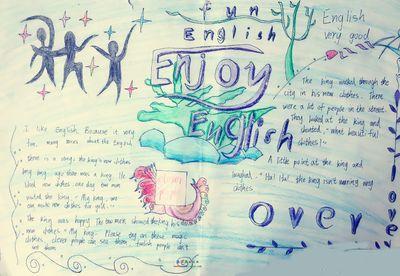 fun
English
Enjoy
English
English
very good
I like English. Because it very
fun, many
there is a song: the king's new clothes
long long ago there was a king. He
liked new clothes one day two men
visited the king. "My king, we
can make new clothes for you."
The king was happy. The two men showed the king his
new clothes. "My king. Please try on these magic
clothes. clever people can see them. foolish people can't
see them
The king walked through the
city in his new clothes. There
were a lot of people in the street.
They looked at the king and
shouted, "What beautiful
clothes!"
A little point at the king and
laughed, "Ha! Ha! the king isn't wearing any
clothes.
over
love